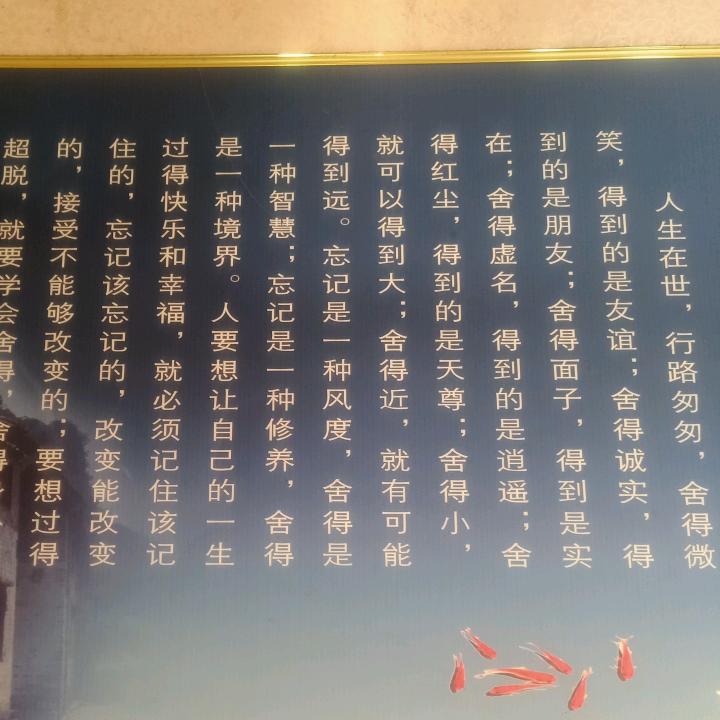 人生在世，行路匆匆，舍得微
笑，得到的是友谊；舍得诚实，得
到的是朋友；舍得面子，得到是实
在；舍得虚名，得到的是逍遥；舍
得红尘，得到的是天尊；舍得小，
就可以得到大；舍得近，就有可能
得到远。忘记是一种风度，舍得是
一种智慧；忘记是一种修养，舍得
是一种境界。人要想让自己的一生
过得快乐和幸福，就必须记住该记
住的，忘记该忘记的，改变能改变
的，接受不能够改变的；要想过得
超脱，就要学会舍得，舍得